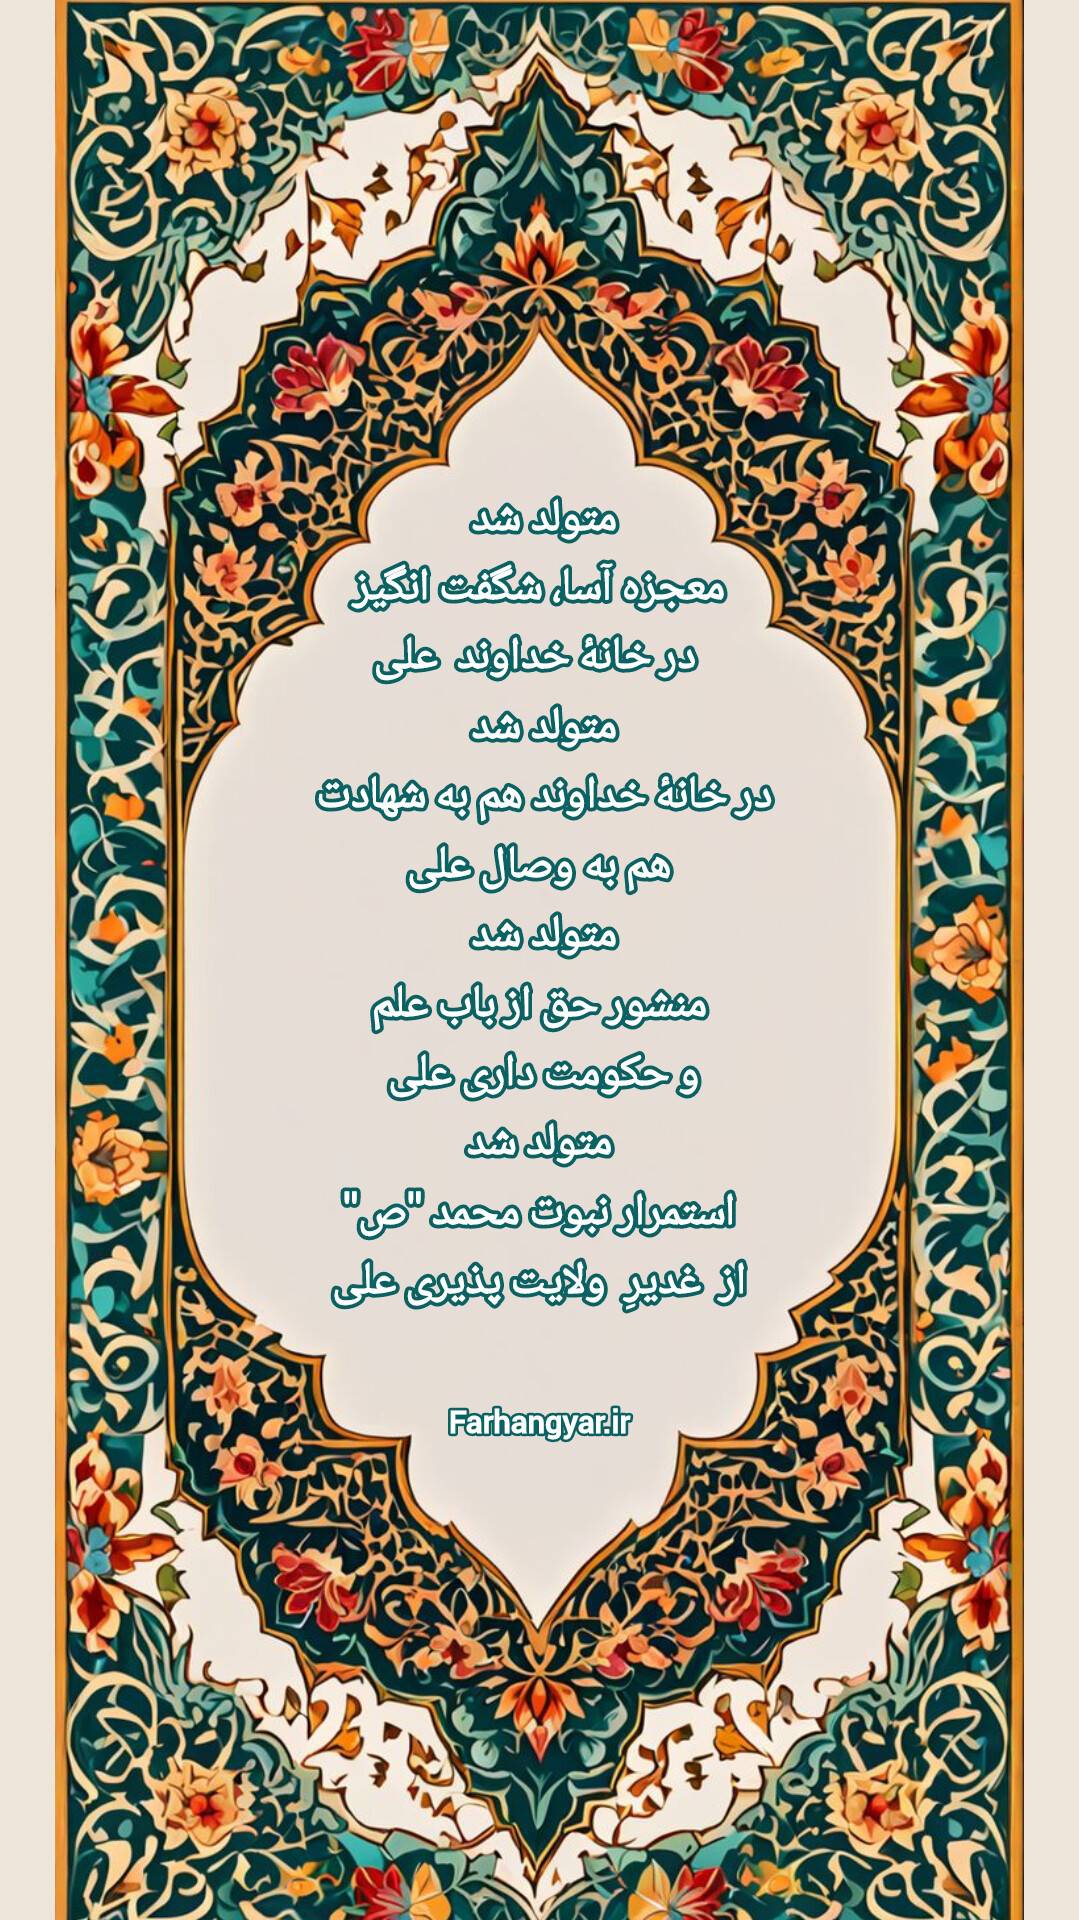 متولد شد
معجزه آسا، شگفت انگیز
در خانهٔ خداوند علی
متولد شد
در خانهٔ خداوند هم به شهادت
هم به وصال علی
متولد شد
منشور حق از باب علم
و حکومت داری علی
متولد شد
استمرار نبوت محمد "ص"
از غدیرِ ولایت پذیری علی
Farhangyar.ir